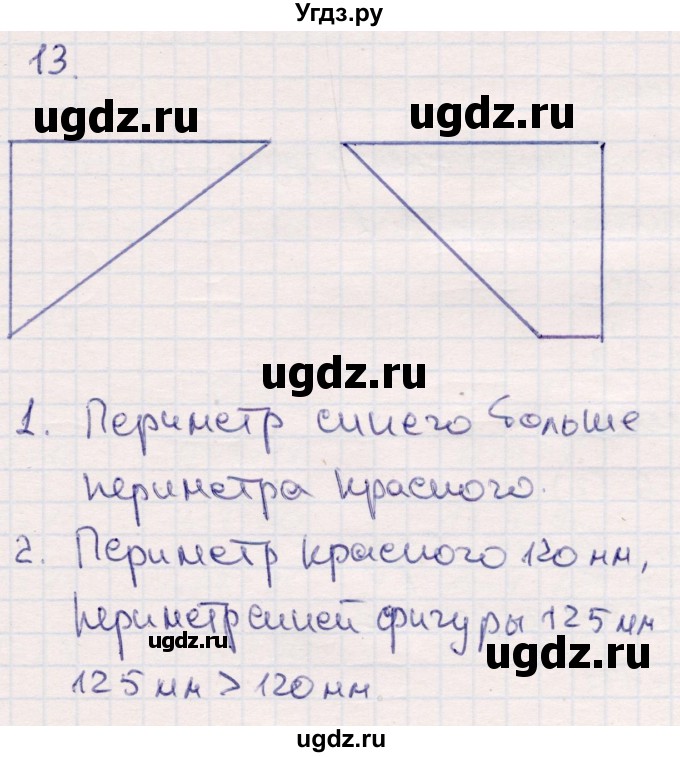 Угдз.ру
13.
ugdz.ru
ugdz.ru
ugdz.ru
1. Периметр синего больше
периметра красного.
2. Периметр красного 120 мм,
периметр синей фигуры 125 мм
ugdz.ru
ugdz.ru
125 мм > 120 мм.
ugdz.ru